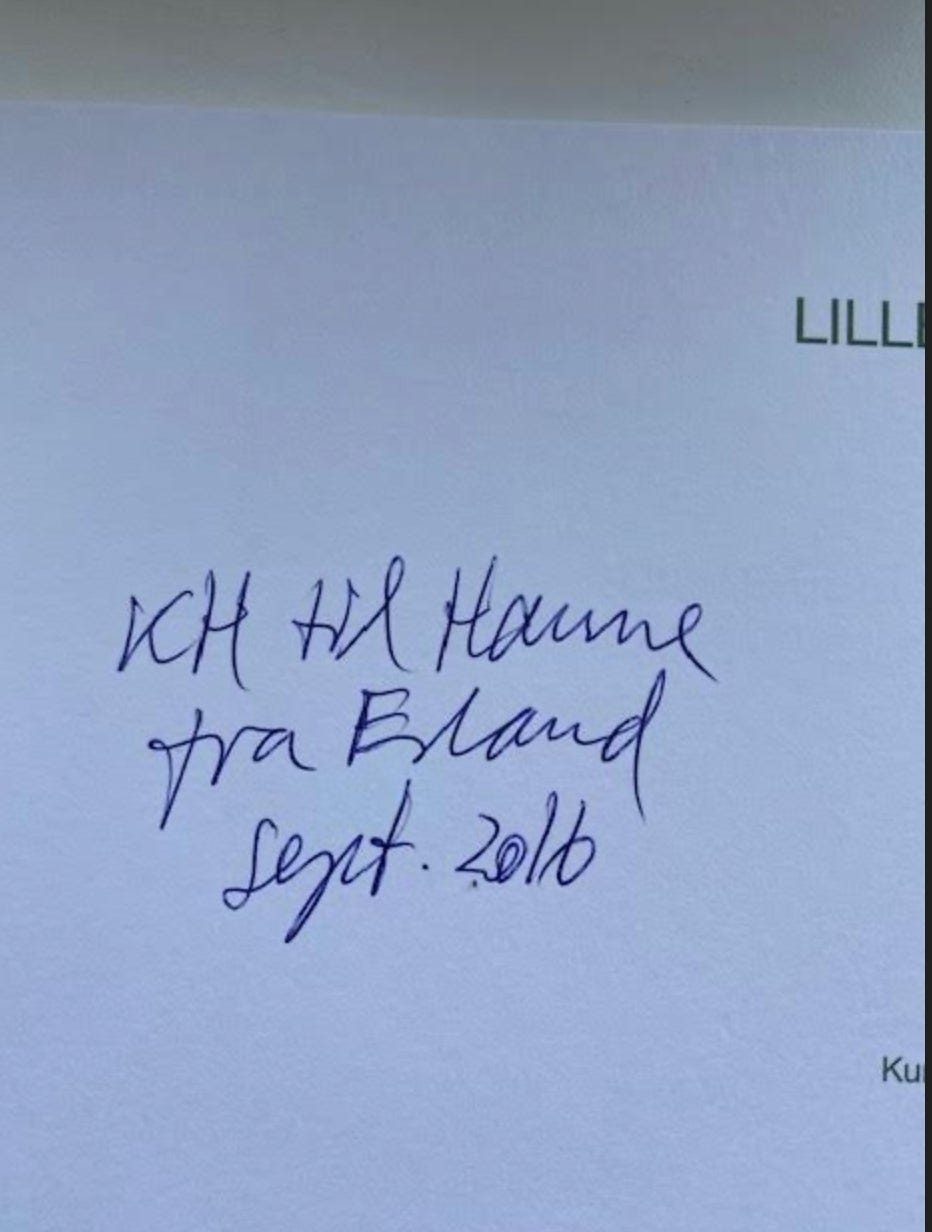 LILL
KH til Hanne
fra Erland
sept. 2016
Ku